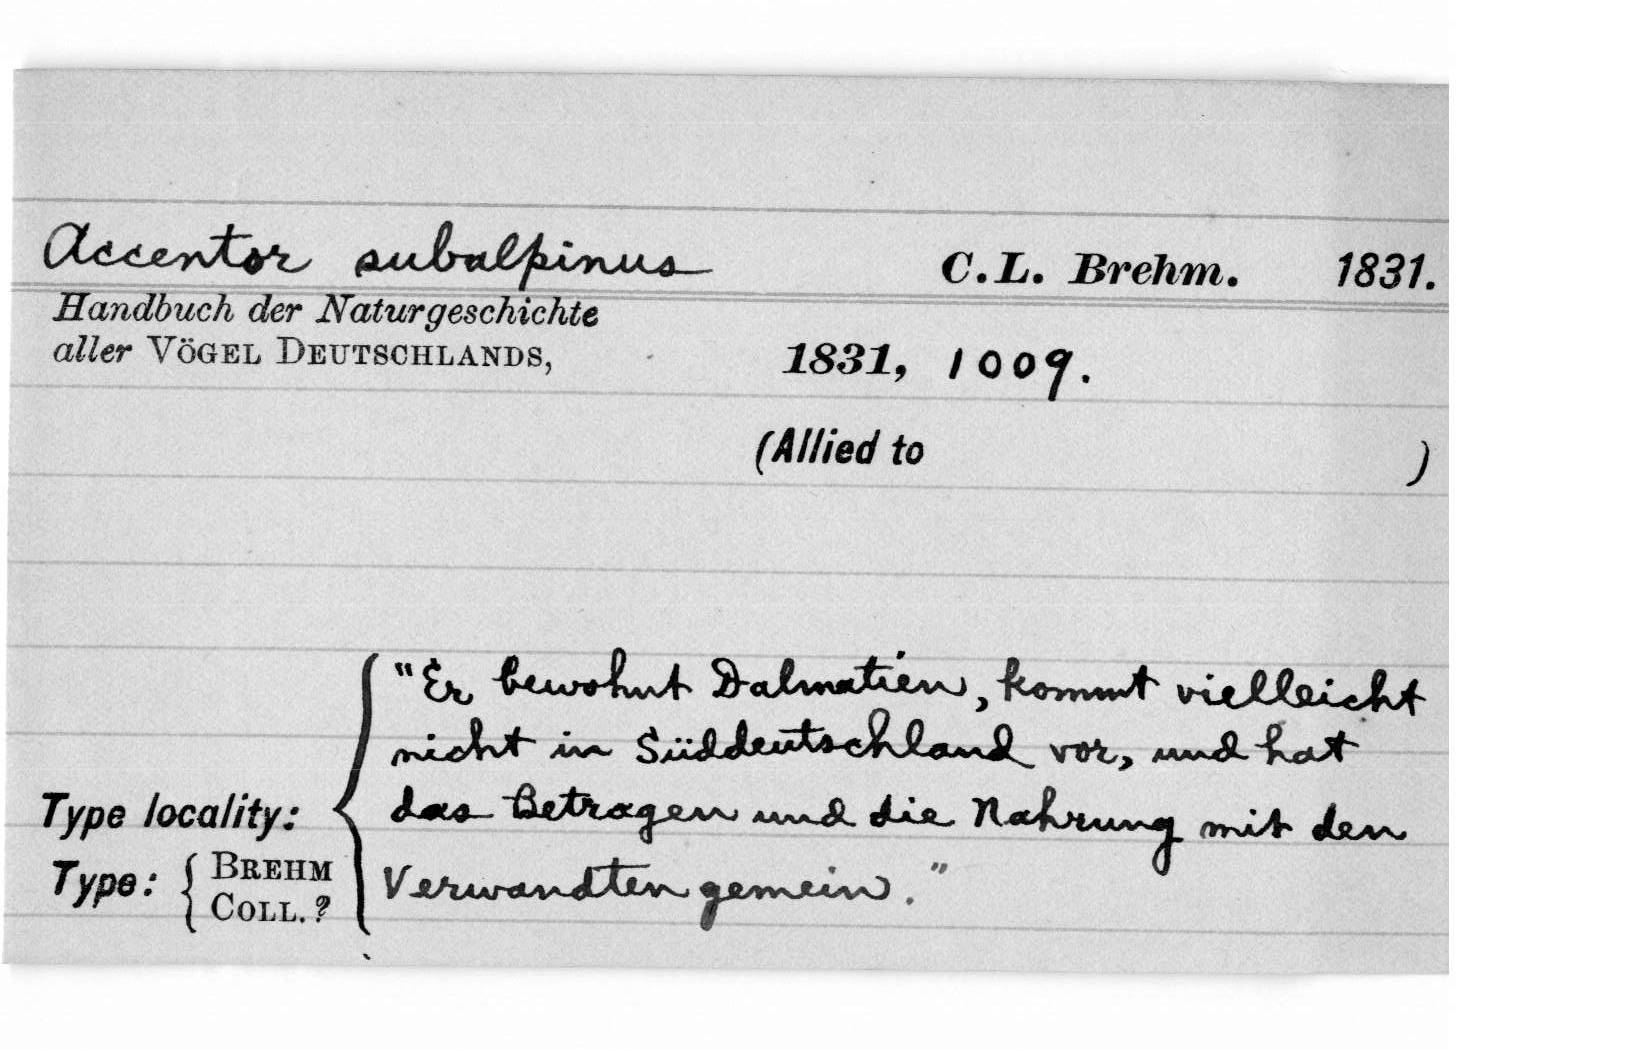 Accentor subalpinus C.L. Brehm. 1831.
Handbuch der Naturgeschichte
aller VÖGEL DEUTSCHLANDS, 1831, 1009.
(Allied to )
"Er bewohnt Dalmatien, kommt vielleicht
nicht in Süddeutschland vor, und hat
Type locality: das Betragen und die Nahrung mit den
Type: BREHM COLL.? Verwandten gemein."